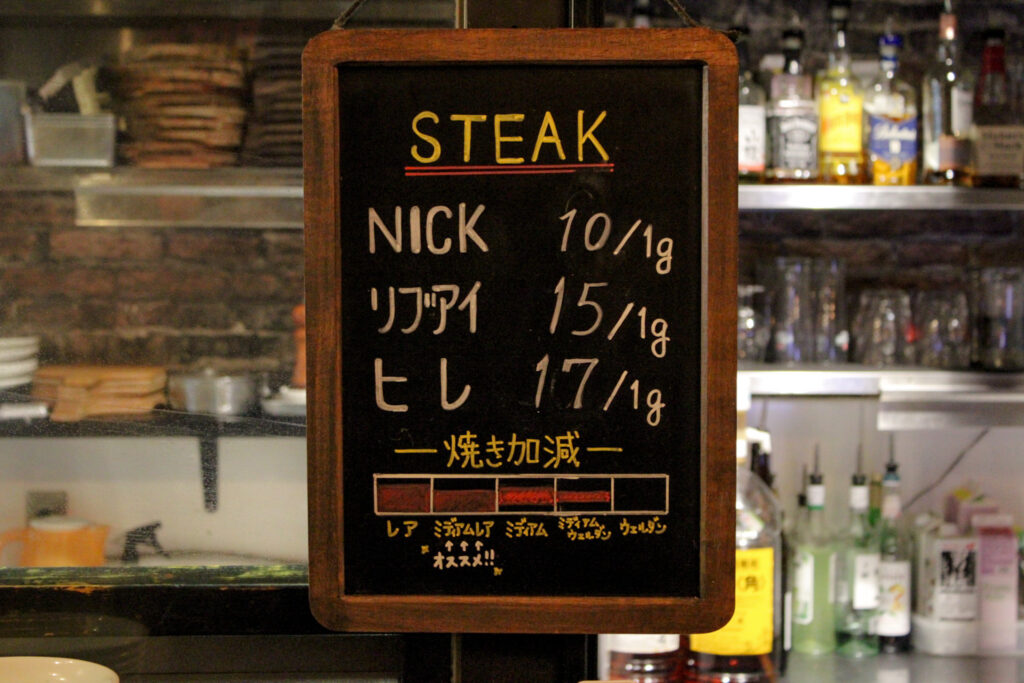 STEAK
NICK 10/1g
リブアイ 15/1g
ヒレ 17/1g
焼き加減
レア ミディアムレア ミディアム ミディアムウェルダン ウェルダン
↑↑↑
オススメ!!